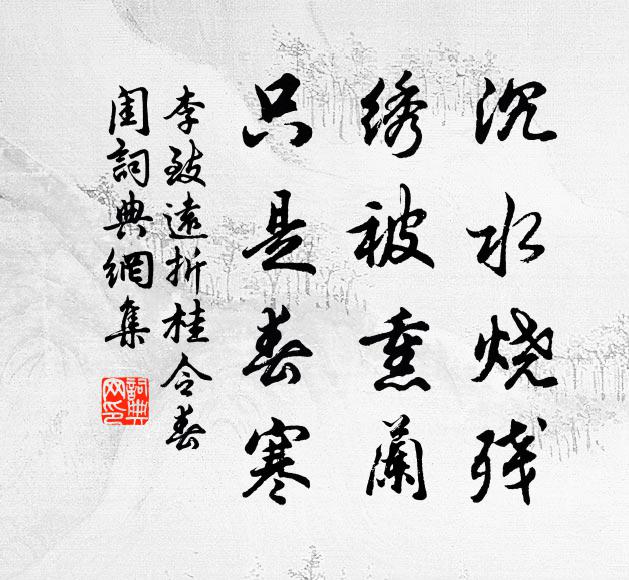 沉水烧残
绣被熏兰
只是春寒
李致遠折桂令春
闺詞典網集
詞典網印